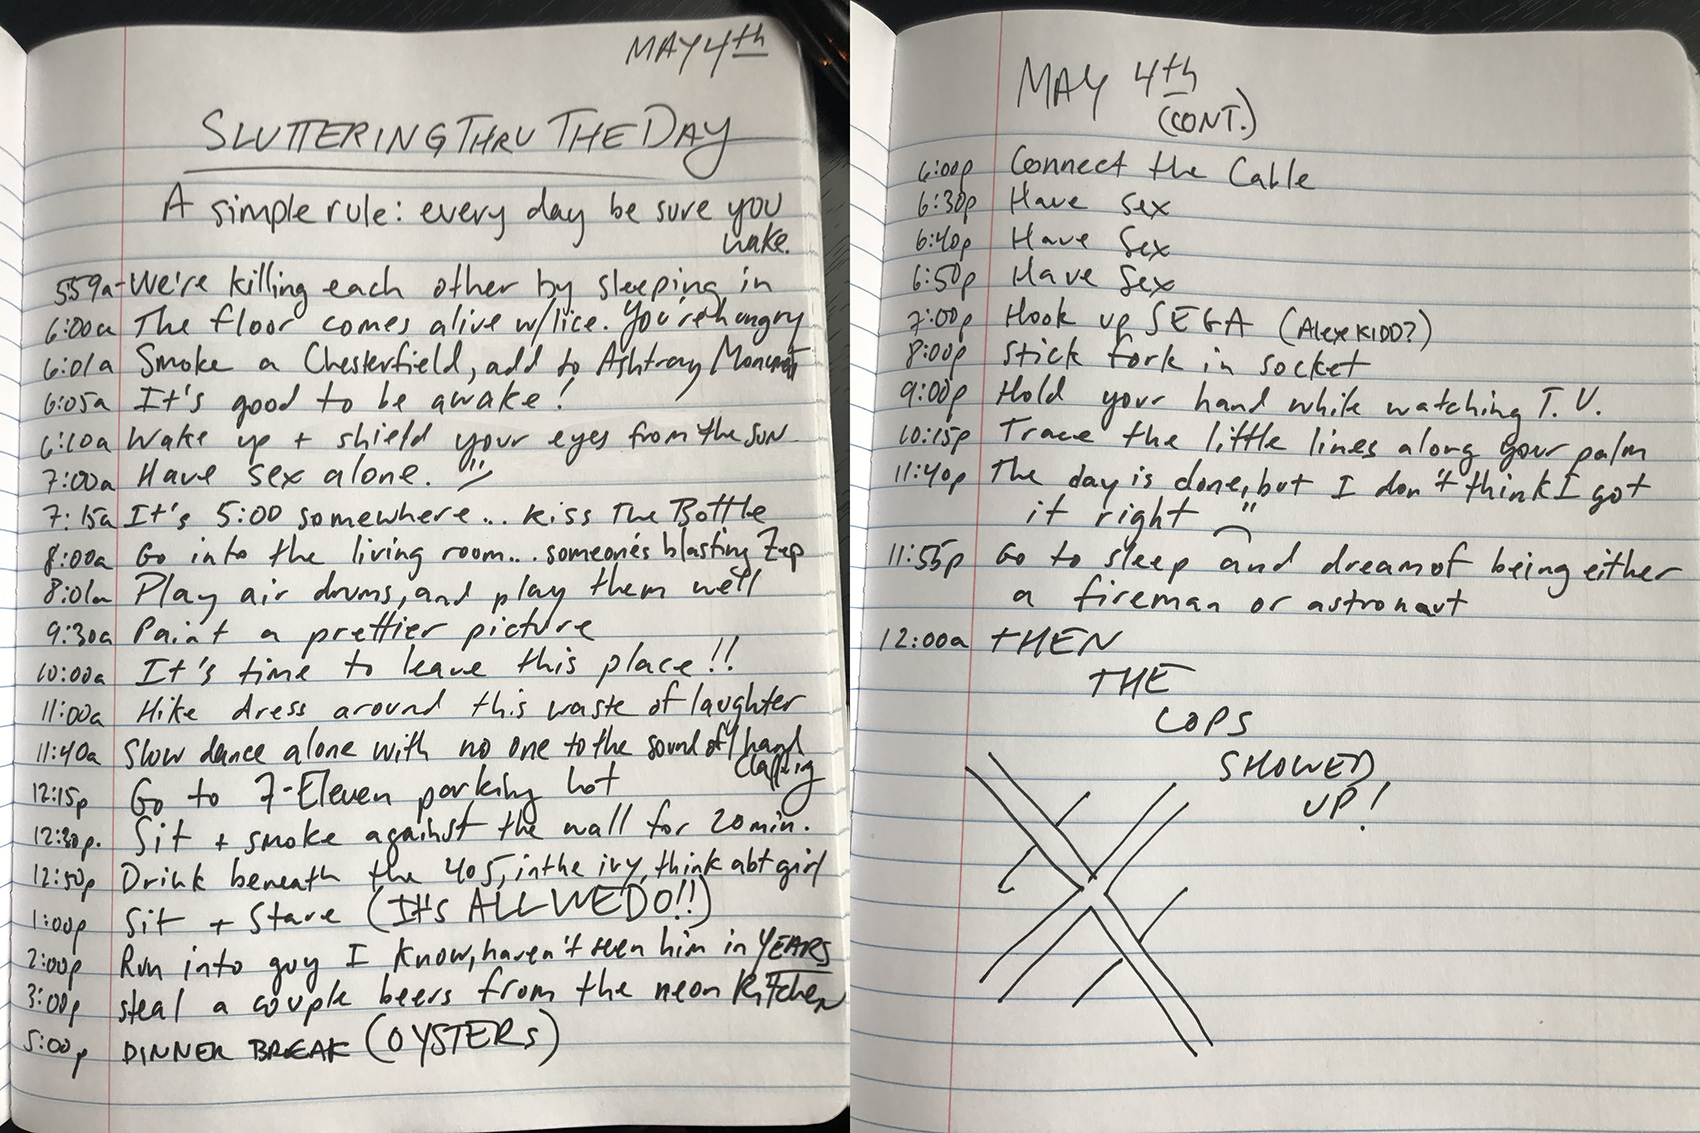 MAY 4th
SLUTTERING THRU THE DAY
A simple rule: every day be sure you
wake.
559a- We're killing each other by sleeping in
6:00a The floor comes alive w/lice. You're hungry
6:01a Smoke a Chesterfield, add to Ashtray Monument
6:05a It's good to be awake!
6:10a Wake up + shield your eyes from the SUN
7:00a Have sex alone.
7:15a It's 5:00 somewhere... kiss The Bottle
8:00a Go into the living room... someone's blasting Zep
8:01a Play air drums, and play them well
9:30a Paint a prettier picture
10:00a It's time to leave this place!!
11:00a Hike dress around this waste of laughter
11:40a Slow dance alone with no one to the sound of 1 hand
clapping
12:15p Go to 7-Eleven parking lot
12:30p. Sit + smoke against the wall for 20 min.
12:50p Drink beneath the 405, in the ivy, think abt girl
1:00p Sit + Stare (It's ALL WE DO!!)
2:00p Run into guy I know, haven't seen him in YEARS
3:00p steal a couple beers from the neon kitchen
5:00p DINNER BREAK (OYSTERS)
MAY 4th
(CONT.)
6:00p Connect the Cable
6:30p Have sex
6:40p Have Sex
6:50p Have Sex
7:00p Hook up SEGA (Alex KIDD?)
8:00p stick fork in socket
9:00p Hold your hand while watching T.V.
10:15p Trace the little lines along your palm
11:40p The day is done, but I don't think I got
it right
11:55p Go to sleep and dream of being either
a fireman or astronaut
12:00a THEN
THE
COPS
SHOWED
UP!